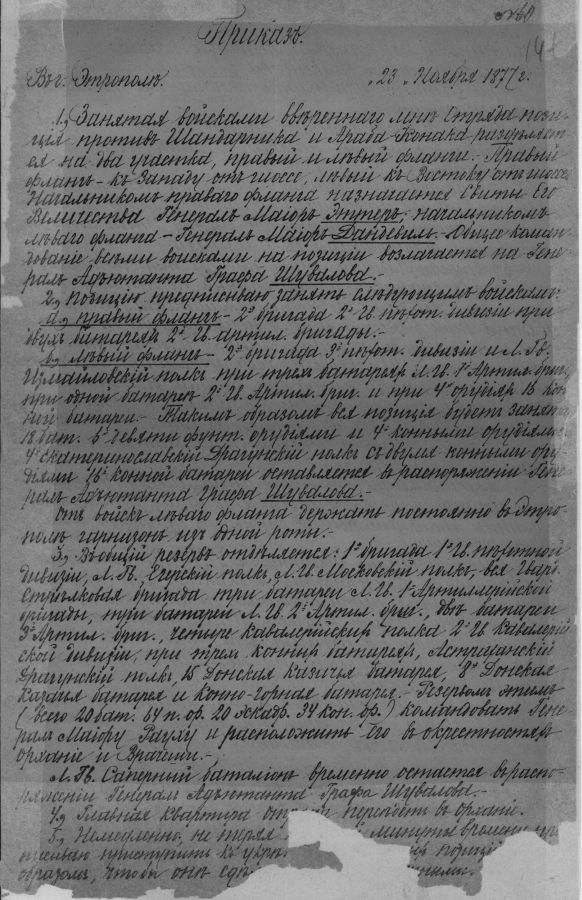 № 60
Приказъ.
Въ г. Этрополѣ. „23„ Ноября 1877 г.
1., Занятая войсками ввѣреннаго мнѣ Отряда пози-
ція противъ Шандарника и Араба-Конака раздѣляет-
ся на два участка, правый и лѣвый фланги.- Правый
флангъ - къ Западу отъ шоссе, лѣвый къ Востоку отъ шоссе.
Начальникомъ праваго фланга назначается Свиты Его
Величества Генералъ Маіоръ Эттеръ, начальникомъ
лѣваго фланга - Генералъ Маіоръ Дандевиль. Общее коман-
дованіе всѣми войсками на позиціи возлагается на Гене-
ралъ Адъютанта Графа Шувалова.-
2., Позицію предписываю занять слѣдующимъ войскамъ:
а., правый флангъ - 2ю бригада 2й Гв. пѣхот. дивизіи при
двухъ батареяхъ 2й Гв. артил. бригады.-
б., лѣвый флангъ - 2я бригада 3й пѣхот. дивизіи и Л. Гв.
Измайловскій полкъ при трехъ батареяхъ Л. Гв. 1й Артил. бриг.,
при одной батареѣ 2й Гв. Артил. бриг. и при 4хъ орудіяхъ 16 кон-
ной батареи.- Такимъ образомъ вся позиція будетъ занята
18 бат. 5ю девяти фунт. орудіями и 4мя конными орудіями.
4й Екатеринославскій Драгунскій полкъ съ двумя конными ору-
діями 16й конной батареи оставляется въ распоряженіи Гене-
ралъ Адъютанта Графа Шувалова.-
Отъ войскъ лѣваго фланга держать постоянно въ Этро-
полѣ гарнизонъ изъ одной роты.-
3., Въ общій резервъ отдѣляется: 1я бригада 1й Гв. пѣхотной
дивизіи, Л. Гв. Егерскій полкъ, Л. Гв. Московскій полкъ, вся Гвард.
Стрѣлковая бригада три батареи Л. Гв. 1й Артиллерійской
бригады, три батареи Л. Гв. 2й Артил. бриг., двѣ батареи
3й Артил. бриг., четыре кавалерійскихъ полка 2й Гв. Кавалерій-
ской дивизіи, при трехъ конныхъ батареяхъ, Астраханскій
Драгунскій полкъ, 15 Донская Казачья батарея, 8я Донская
Казачья батарея и Конно-горная батарея.- Резервомъ этимъ
(всего 20 бат. 64 п. ор. 20 эскадр. 34 кон. ор.) командовать Гене-
ралъ Маіору Рауху и расположить его въ окрестностяхъ
Орханіе и Врачеши.-
Л. Гв. Саперный баталіонъ временно остается въ распо-
ряженіи Генералъ Адъютанта Графа Шувалова.-
4., Главная Квартира перейдетъ въ Орханіе.
5., Немедленно, не теряя минуты времени
приступить къ
образомъ, чтобы онѣ